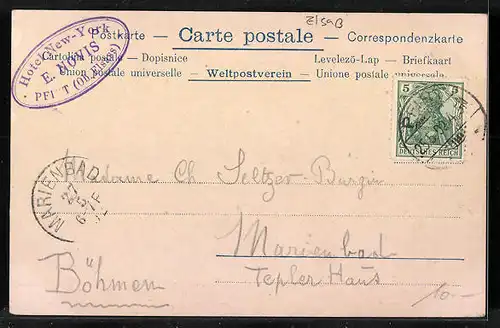 Elsaß
Postkarte - Carte postale - Correspondenzkarte
Cartolina postale - Dopisnice Levelező-Lap - Briefkaart
Union postale universelle - Weltpostverein - Unione postale universale
Hotel New-York
E. HOVIS
PFI T (Ob. Elsass)
5
DEUTSCHES REICH
MARIENBAD
27
5
6-7F
Madame Ch Seltzer-Bürgin
Marienbad
Tepler Haus
Böhmen
10.-